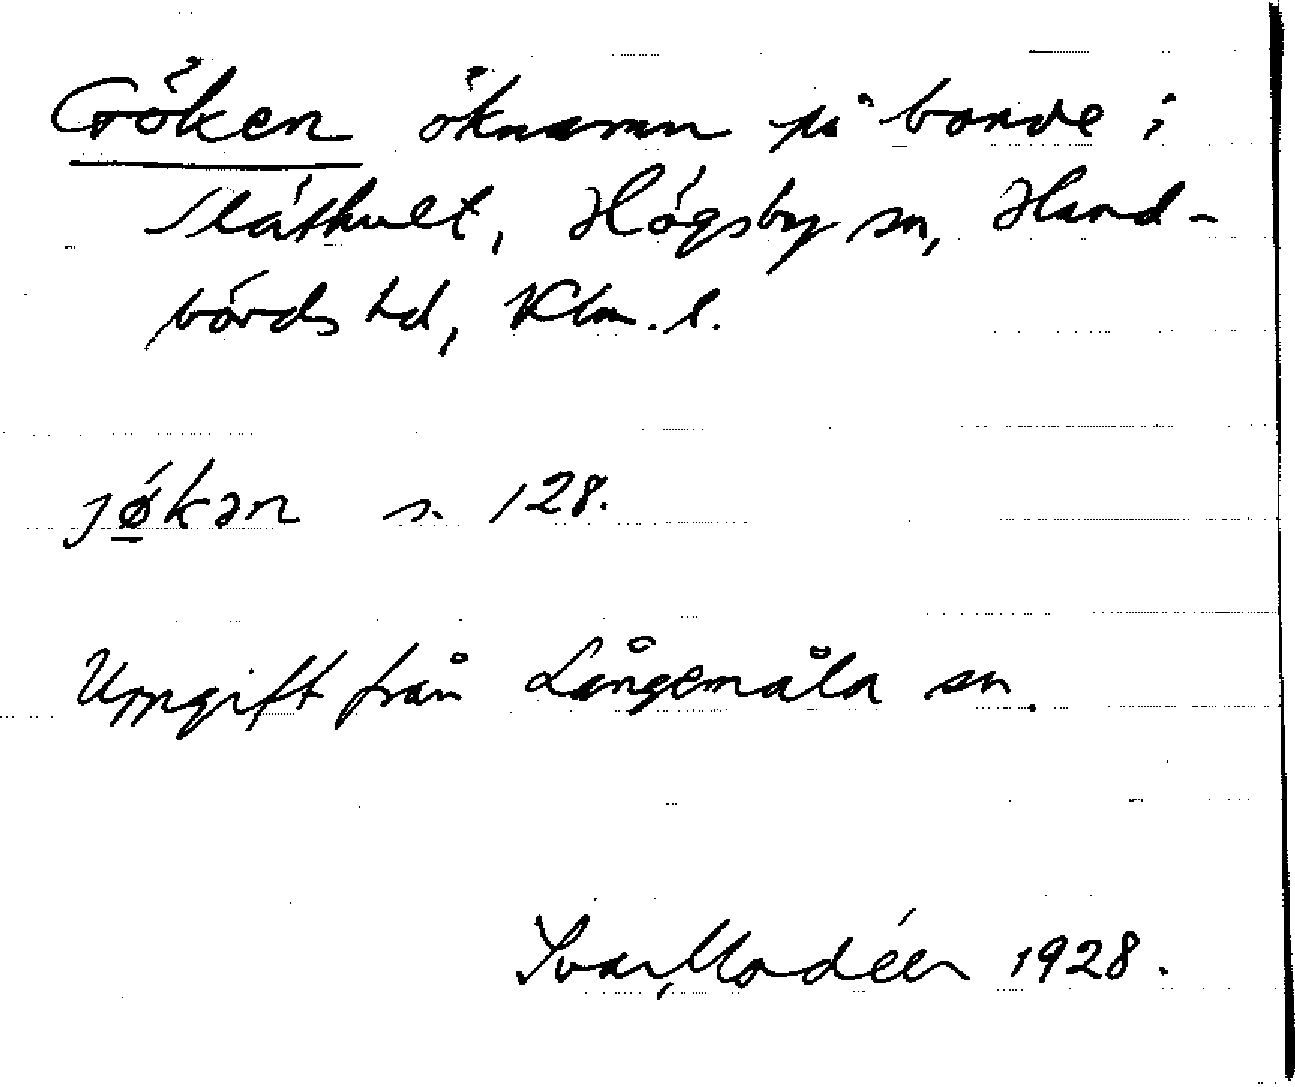 Göken öknamn på bonde i
Släthult, Högsby sn, Hand-
börds hd, Klm. l.
jø̱kən s. 128.
Uppgift från Långemåla sn.
Ivar Modéer 1928.